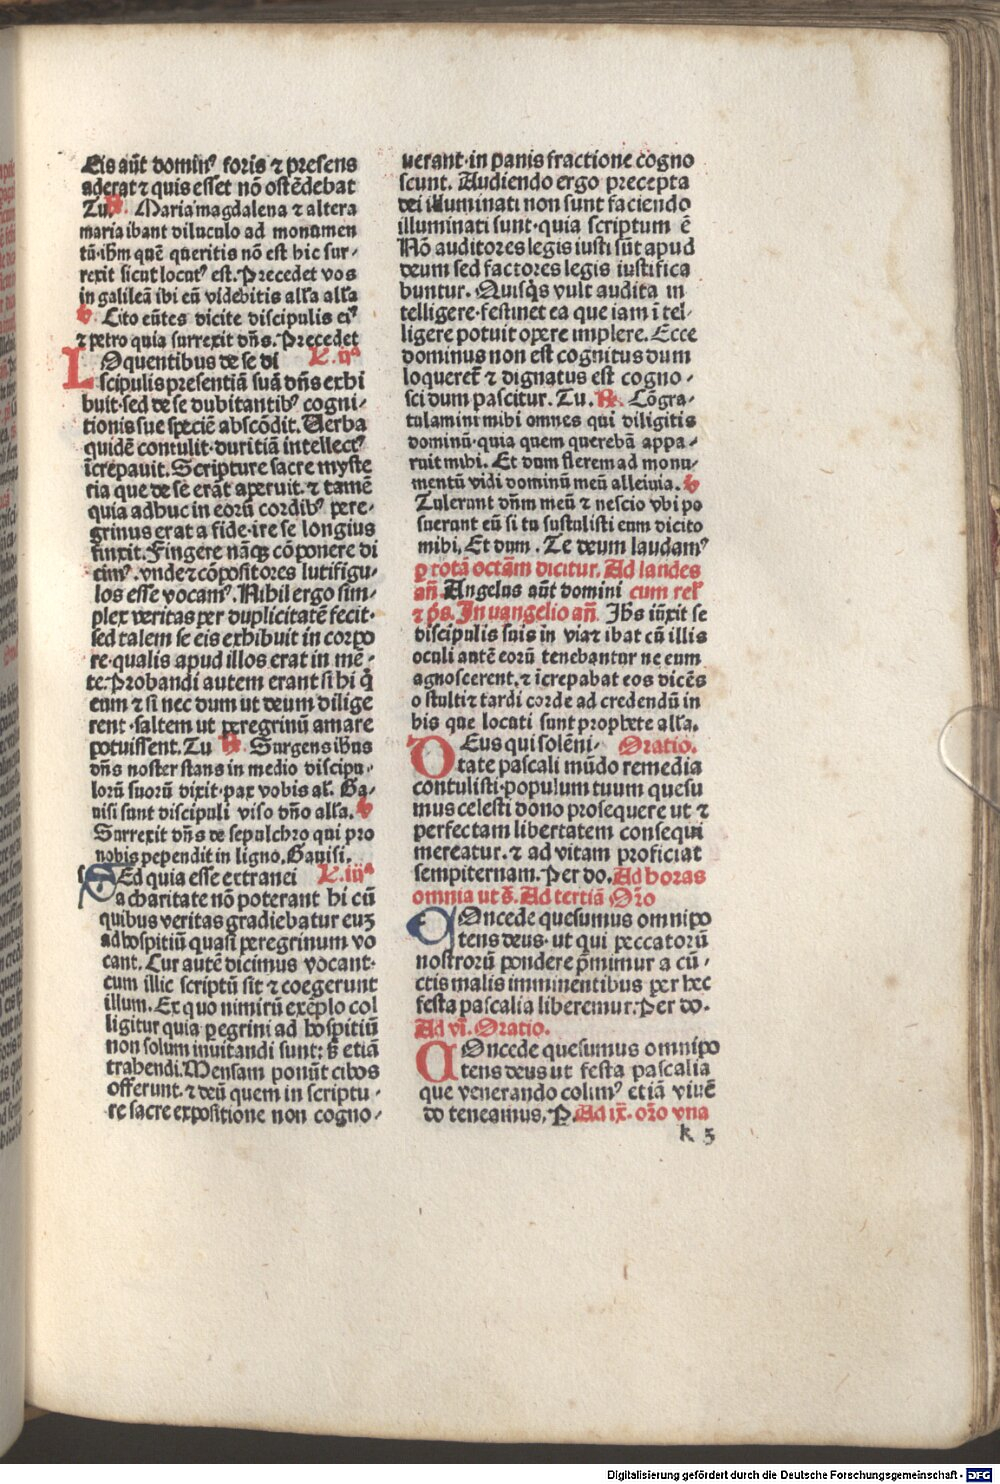 Eis aūt dominꝰ foris ⁊ presens
aderat ⁊ quis esset nō ostēdebat
Tu. ℟. Maria magdalena ⁊ altera
maria ibant diluculo ad monumen
tū·ihm quē queritis nō est hic sur-
rexit sicut locutꝰ est. Precedet vos
in galileā ibi eū videbitis alľa alľa
℣. Cito eūtes dicite discipulis eiꝰ
⁊ petro quia surrexit dn̄s. Precedet
LOquentibus de se di L. ijᵃ
scipulis presentiā suā dn̄s exhi
buit·sed de se dubitantibꝰ cogni-
tionis sue speciē abscōdit. Uerba
quidē contulit·duritiā intellectꝰ
īcrepauit. Scripture sacre myste
ria que de se erāt aperuit. ⁊ tamē
quia adhuc in eorū cordibꝰ pere-
grinus erat a fide·ire se longius
finxit. Fingere nāqꝫ cōponere di
cimꝰ. vnde ⁊ cōpositores luti figu-
los esse vocamꝰ. Nihil ergo sim-
plex veritas per duplicitatē fecit·
sed talem se eis exhibuit in corpo
re·qualis apud illos erat in mē-
te. Probandi autem erant si hi q̄
eum ⁊ si nec dum ut deum dilige
rent·saltem ut peregrinū amare
potuissent. Tu ℟. Surgens ihūs
dn̄s noster stans in medio discipu-
lorū suorū dixit·pax vobis al̄. Ga-
uisi sunt discipuli viso dn̄o alľa. ℣
Surrexit dn̄s de sepulchro qui pro
nobis pependit in ligno. Gauisi.
SEd quia esse extranei L. iijᵃ
a charitate nō poterant hi cū
quibus veritas gradiebatur euꝫ
ad hospitiū quasi peregrinum vo
cant. Cur autē dicimus vocant·
cum illic scriptū sit ⁊ coegerunt
illum. Ex quo nimirū exēplo col
ligitur quia ꝑegrini ad hospitiū
non solum inuitandi sunt: sꝫ etiā
trahendi. Mensam ponūt cibos
offerunt. ⁊ deū quem in scriptu-
re sacre expositione non cogno-
uerant·in panis fractione cogno
scunt. Audiendo ergo precepta
dei illuminati non sunt faciendo
illuminati sunt·quia scriptum ē
Nō auditores legis iusti sūt apud
deum sed factores legis iustifica
buntur. Quisq̄s vult audita in
telligere·festinet ea que iam ī tel-
ligere potuit opere implere. Ecce
dominus non est cognitus dum
loqueret̄ ⁊ dignatus est cogno-
sci dum pascitur. Tu. ℟. Cōgra-
tulamini mihi omnes qui diligitis
dominū·quia quem querebā appa-
ruit mihi. Et dum flerem ad monu-
mentū vidi dominū meū alleluia. ℣
Tulerunt dn̄m meū ⁊ nescio vbi po
suerunt eū si tu sustulisti eum dicito
mihi. Et dum. Te deum laudamꝰ
ꝑ totā octām dicitur. Ad laudes
an̄. Angelus aūt domini cum rel̄
⁊ p̄s. In uangelio an̄. Ihs iūxit se
discipulis suis in via ⁊ ibat cū illis
oculi autē eorū tenebantur ne eum
agnoscerent. ⁊ īcrepabat eos dicēs
o stulti ⁊ tardi corde ad credendū in
his que locuti sunt prophete alľa.
DEus qui solēni- Oratio.
tate pascali mūdo remedia
contulisti·populum tuum quesu
mus celesti dono prosequere ut ⁊
perfectam libertatem consequi
mereatur. ⁊ ad vitam proficiat
sempiternam. Per do. Ad horas
omnia ut s̄. Ad tertiā Or̄o
COncede quesumus omnipo
tens deus·ut qui peccatorū
nostrorū pondere p̄mimur a cū-
ctis malis imminentibus per hec
festa pascalia liberemur. Per do.
Ad vi. Oratio.
COncede quesumus omnipo
tens deus ut festa pascalia
que venerando colimꝰ etiā viuē
do teneamus. P. Ad ix. or̄o vna
k 3
Digitalisierung gefördert durch die Deutsche Forschungsgemeinschaft - DFG